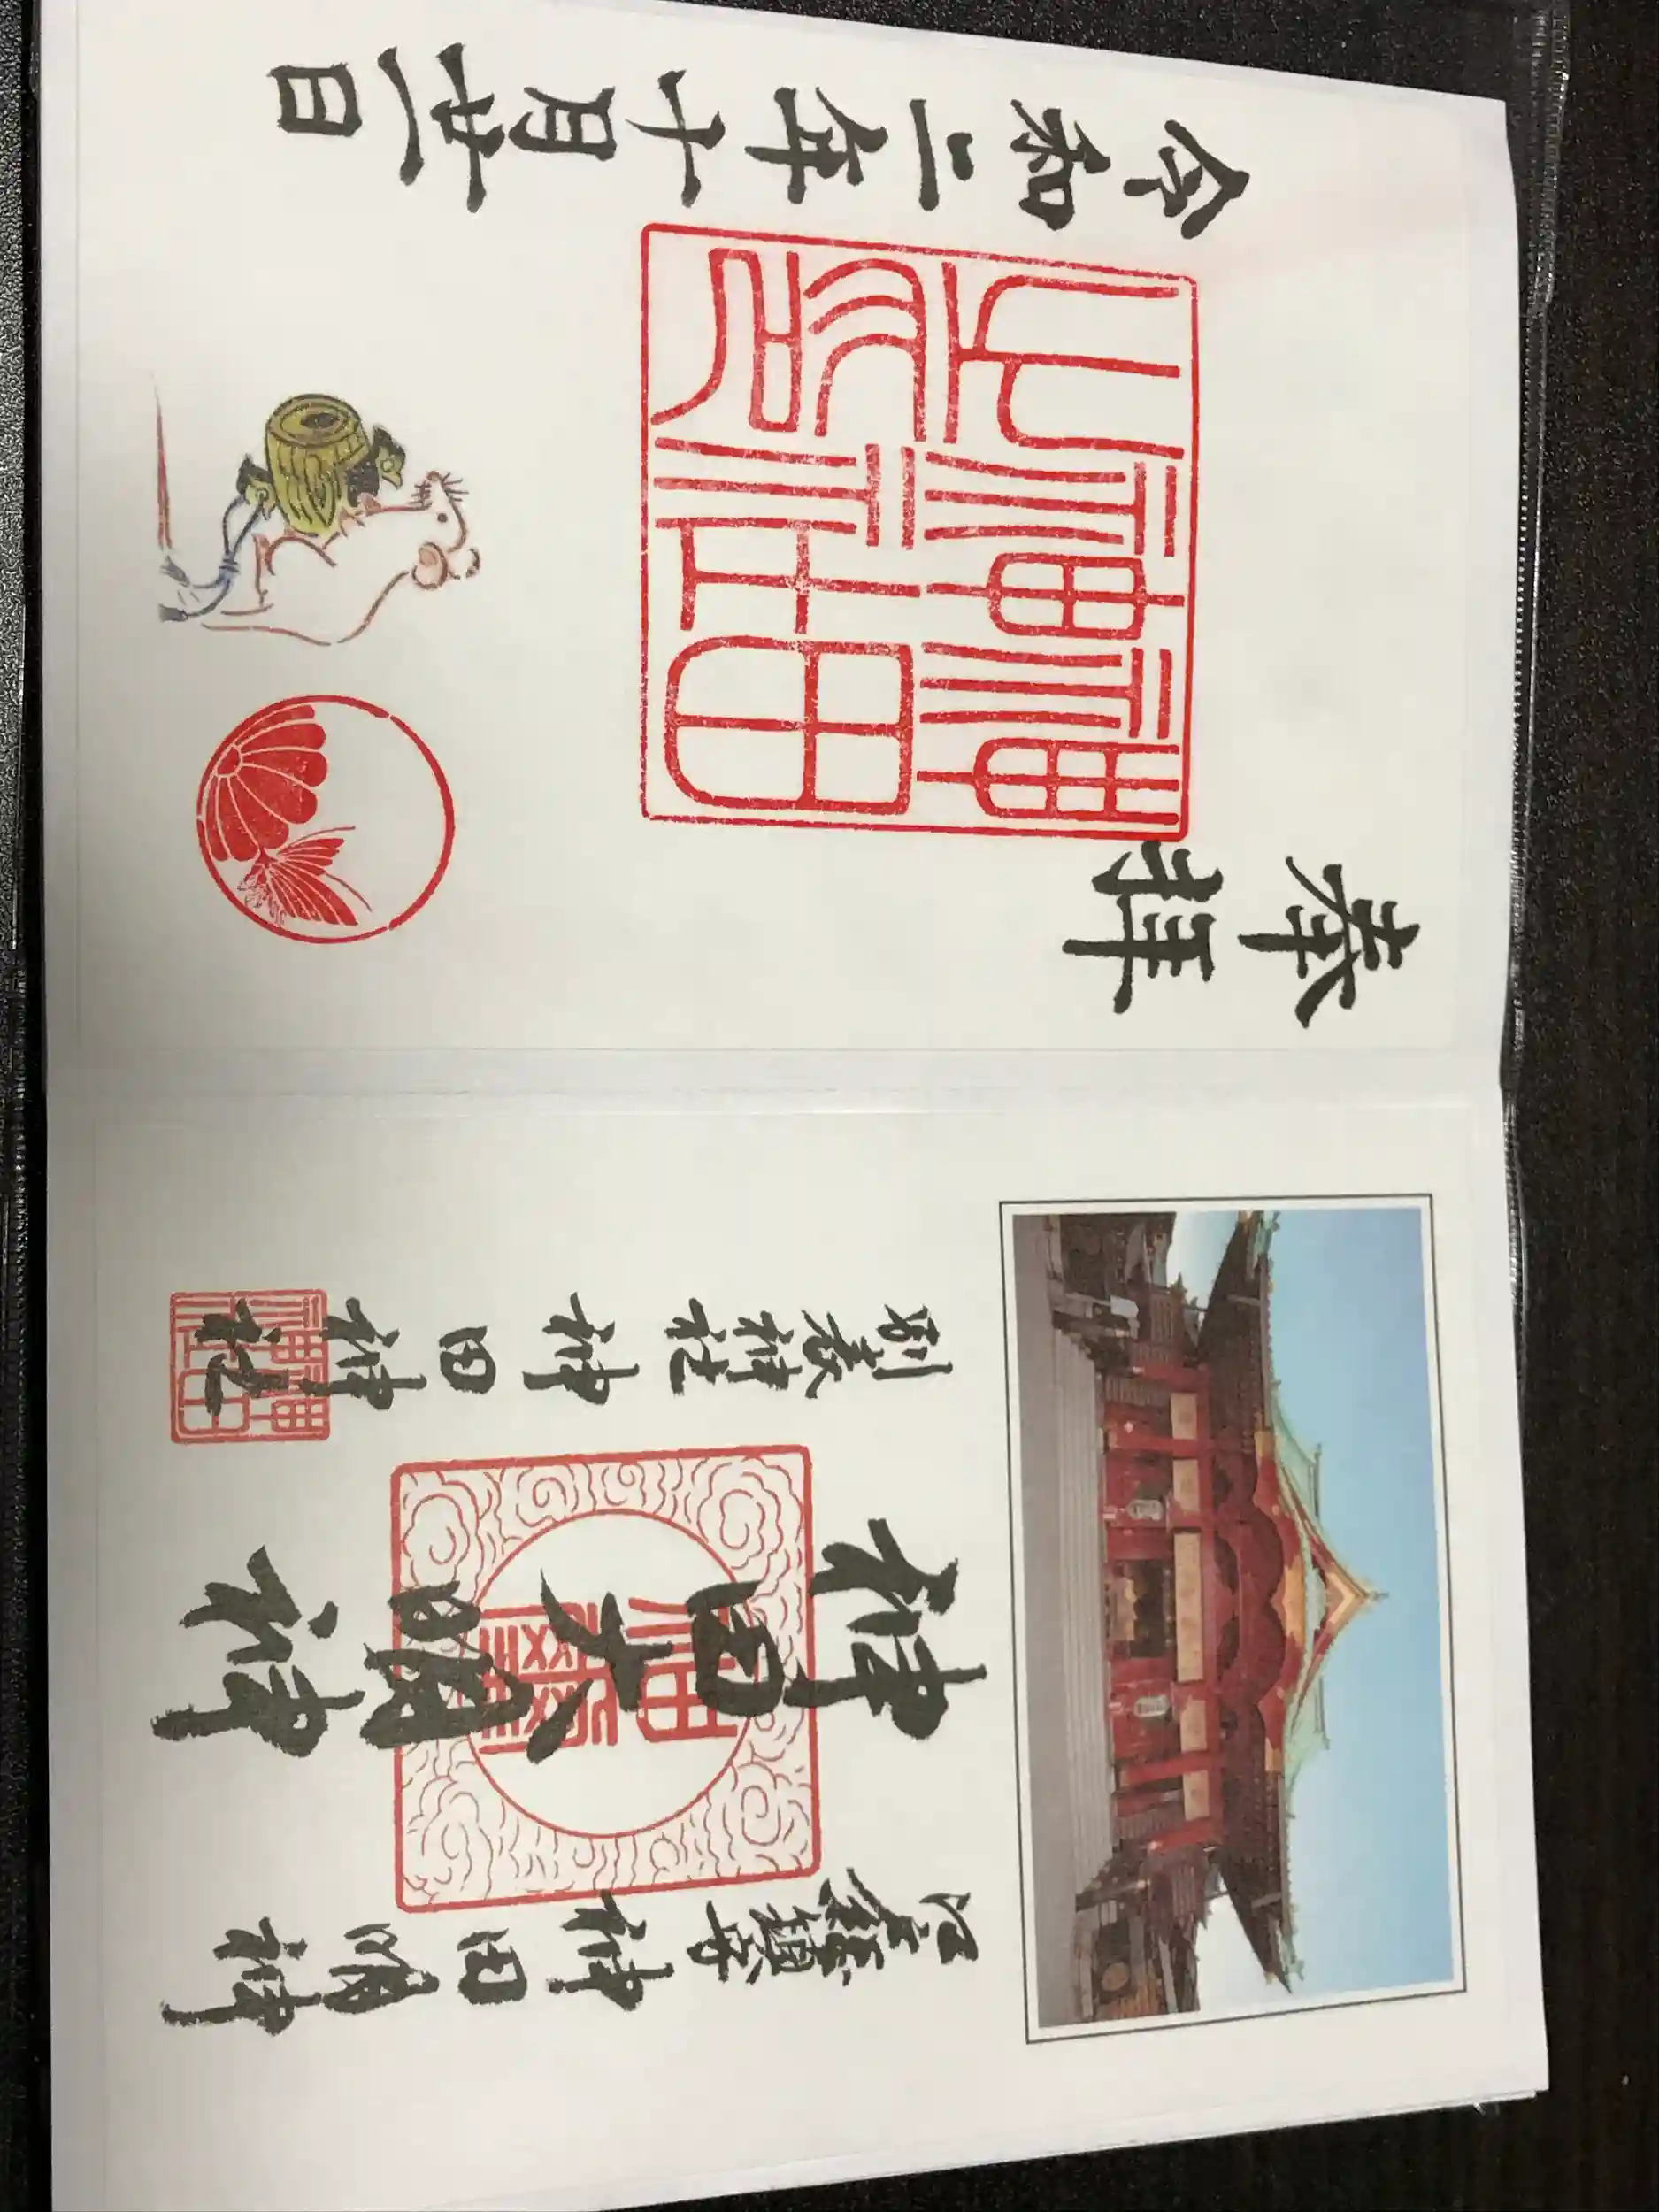 江戸總鎮守 神田明神
神田大明神
別表神社 神田神社
奉拝
神田
神社
之印
令和二年十月廿一日